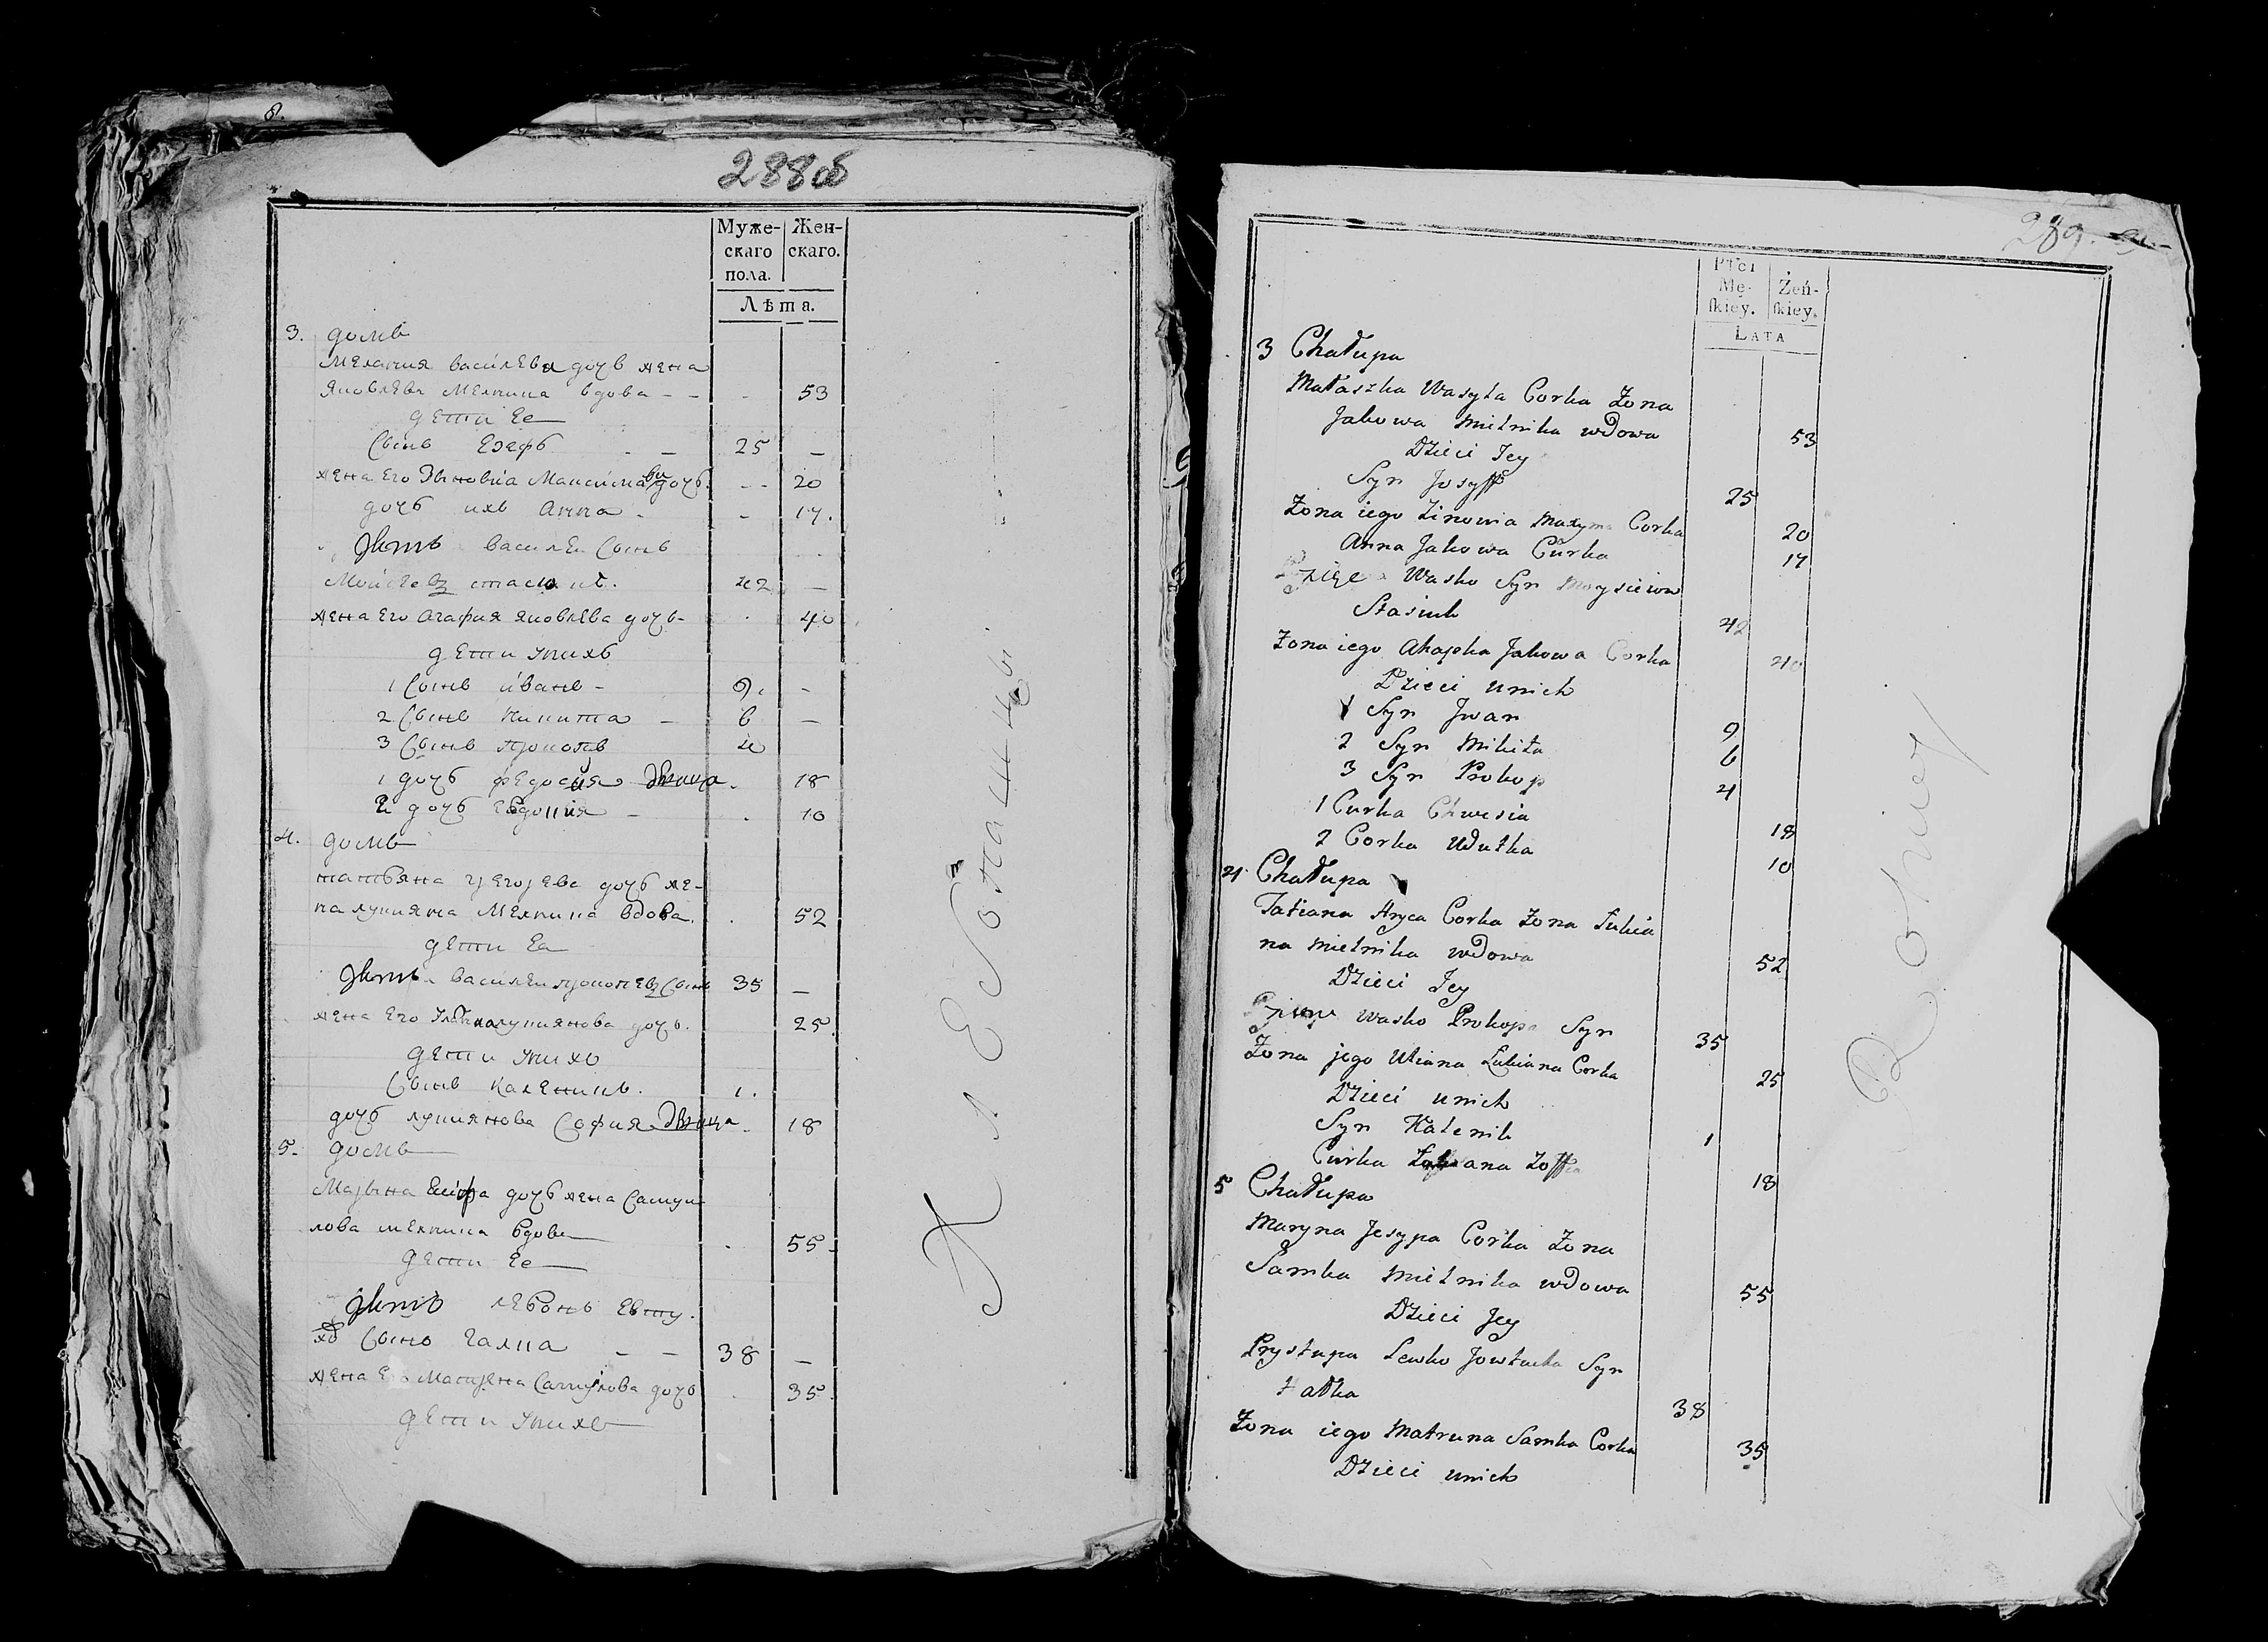 288об
Муже-
скаго
пола.
Жен-
скаго.
Лѣта.
3. домъ
Мелания василева дочь жена
Яковлева Мелника вдова - - 53
дети Ее
Сынъ Езефъ 25 -
жена Его Зѣновиа Максимова дочь 20
дочь ихъ Анна 17.
Зять василеи Сынъ
Мойсеевъ стасюкъ. 42 -
жена Его Агафия яковлева дочь 40
дети унихъ
1 Сынъ иванъ - 9. -
2 Сынъ Никита - 6 -
3 Сынъ прокопъ 4
1 дочь федосия Двица. 18
2 дочь Евдокия - 10
4. домъ
татьяна григорева дочь же-
на лукияна Мелника вдова. 52
дети Еа
Зять василеи прокопевъ Сынъ 35 -
жена Его Улянна лукиянова дочь. 25
дети унихъ
Сынъ каленикъ. 1.
дочь лукиянова София Двица. 18
5. домъ
Марина Есифа дочь жена Самуи
лова мелника вдова 55
дети Ее
Зять левонъ Евту
хъ Сынъ галка - - 38 -
жена Его Матрена Самуилова дочь 35
дети унихъ
Хлебопашцы
289.
Płci
Mę-
skiey.
Żeń-
skiey.
LATA
3 Chałupa
Małaszka Wasyla Corka Żona
Jakowa mielnika wdowa 53
Dzieci Jey
Syn Josyff 25
Żona iego Zinowia Maxyma Corka 20
Anna Jakowa Curka 17
Wasko Syn Moysieiow
Stasiuk 42
Żona iego Ahapka Jakowa Corka 40
Dzieci unich
1 Syn Jwan 9
2 Syn Mikita 6
3 Syn Prokop 4
1 Curka Chwesia 18
2 Corka Wdutka 10
4 Chałupa
Tatiana Hryca Corka Żona Łukia
na mielnika wdowa 52
Dzieci Jey
Wasko Prokopa Syn 35
Żona jego Uliana Łukiana Corka 25
Dzieci unich
Syn Kalenik 1
Curka Łukiana Zoffia 18
5 Chałupa
Maryna Jesypa Corka Żona
Samka mielnika wdowa 55
Dzieci Jey
Prystupa Lewko Jowtucha Syn
Hałka 38
Żona iego Matruna Samka Corka 35
Dzieci unich
Rolniey